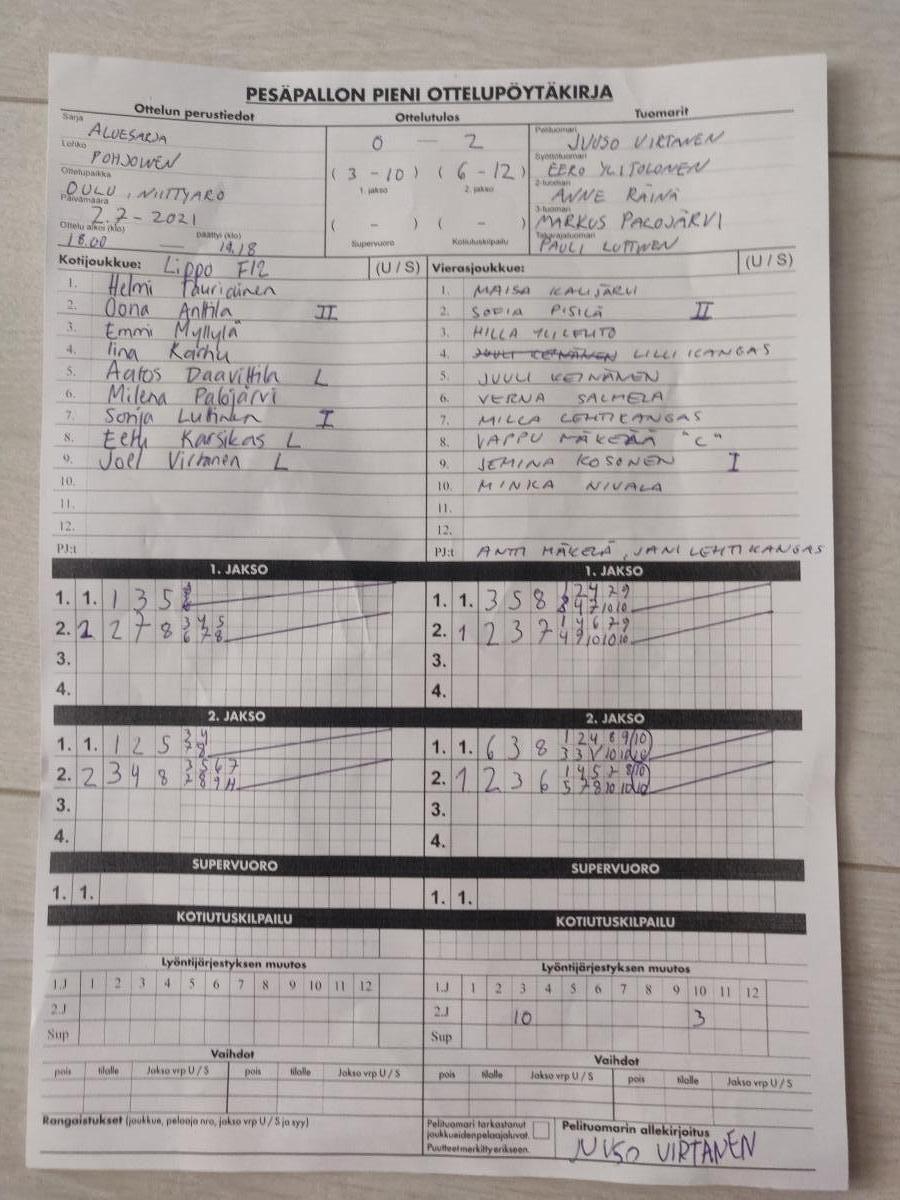 PESÄPALLON PIENI OTTELUPÖYTÄKIRJA
Ottelun perustiedot Ottelutulos Tuomarit
Sarja ALUESARJA
Lohko POHJOINEN
Ottelupaikka OULU, NIITTYARO
Päivämäärä 2.7-2021
Ottelu alkoi (klo) 18.00 — päättyi (klo) 19.18
0 — 2
(3-10) (6-12)
1. jakso 2. jakso
( - ) ( - )
Supervuoro Kotiutuskilpailu
Pelituomari JUUSO VIRTANEN
Syöttötuomari EERO YLITOLONEN
2-tuomari ANNE RÄINÄ
3-tuomari MARKUS PALOJÄRVI
Takarajatuomari PAULI LUTTINEN
Kotijoukkue: Lippo F12 (U / S)
1. Helmi Tauriainen
2. Oona Anttila II
3. Emmi Myllylä
4. Iina Karhu
5. Aatos Daavittila L
6. Milena Palojärvi
7. Sonja Luttinen I
8. Eetu Karsikas L
9. Joel Virtanen L
10.
11.
12.
PJ:t
Vierasjoukkue: (U / S)
1. MAISA KALIJÄRVI
2. SOFIA PISILÄ II
3. HILLA YLILEHTO
4. JUULI KEINÄNEN LILLI KANGAS
5. JUULI KEINÄNEN
6. VERNA SALMELA
7. MILLA LEHTIKANGAS
8. VAPPU MÄKELÄ "C"
9. JEMINA KOSONEN I
10. MINKA NIVALA
11.
12.
PJ:t ANTTI MÄKELÄ, JANI LEHTIKANGAS
1. JAKSO 1. JAKSO
1. 1. 1 3 5
2. 2 2 7 8 3 4 5
6 7 8
3.
4.
1. 1. 3 5 8 1 2 4 7 9
8 4 7 10 10
2. 1 2 3 7 1 4 6 7 9
4 9 10 10 10
3.
4.
2. JAKSO 2. JAKSO
1. 1. 1 2 5 3 4
7 8
2. 2 3 4 8 3 5 6 7
7 8 9 11
3.
4.
1. 1. 6 3 8 1 2 4 8 9 10
3 3
2. 1 2 3 6 1 4 5 7 8 10
5 7 8 10 10 10
3.
4.
SUPERVUORO SUPERVUORO
1. 1. 1. 1.
KOTIUTUSKILPAILU KOTIUTUSKILPAILU
Lyöntijärjestyksen muutos Lyöntijärjestyksen muutos
1.J 1 2 3 4 5 6 7 8 9 10 11 12
2.J
Sup
1.J 1 2 3 4 5 6 7 8 9 10 11 12
2.J 10 3
Sup
Vaihdot Vaihdot
pois tilalle Jakso vrp U / S pois tilalle Jakso vrp U / S
pois tilalle Jakso vrp U / S pois tilalle Jakso vrp U / S
Rangaistukset (joukkue, pelaaja nro, jakso vrp U / S ja syy)
Pelituomari tarkastanut
joukkueiden pelaajaluvat.
Puutteet merkitty erikseen.
Pelituomarin allekirjoitus
JUUSO VIRTANEN